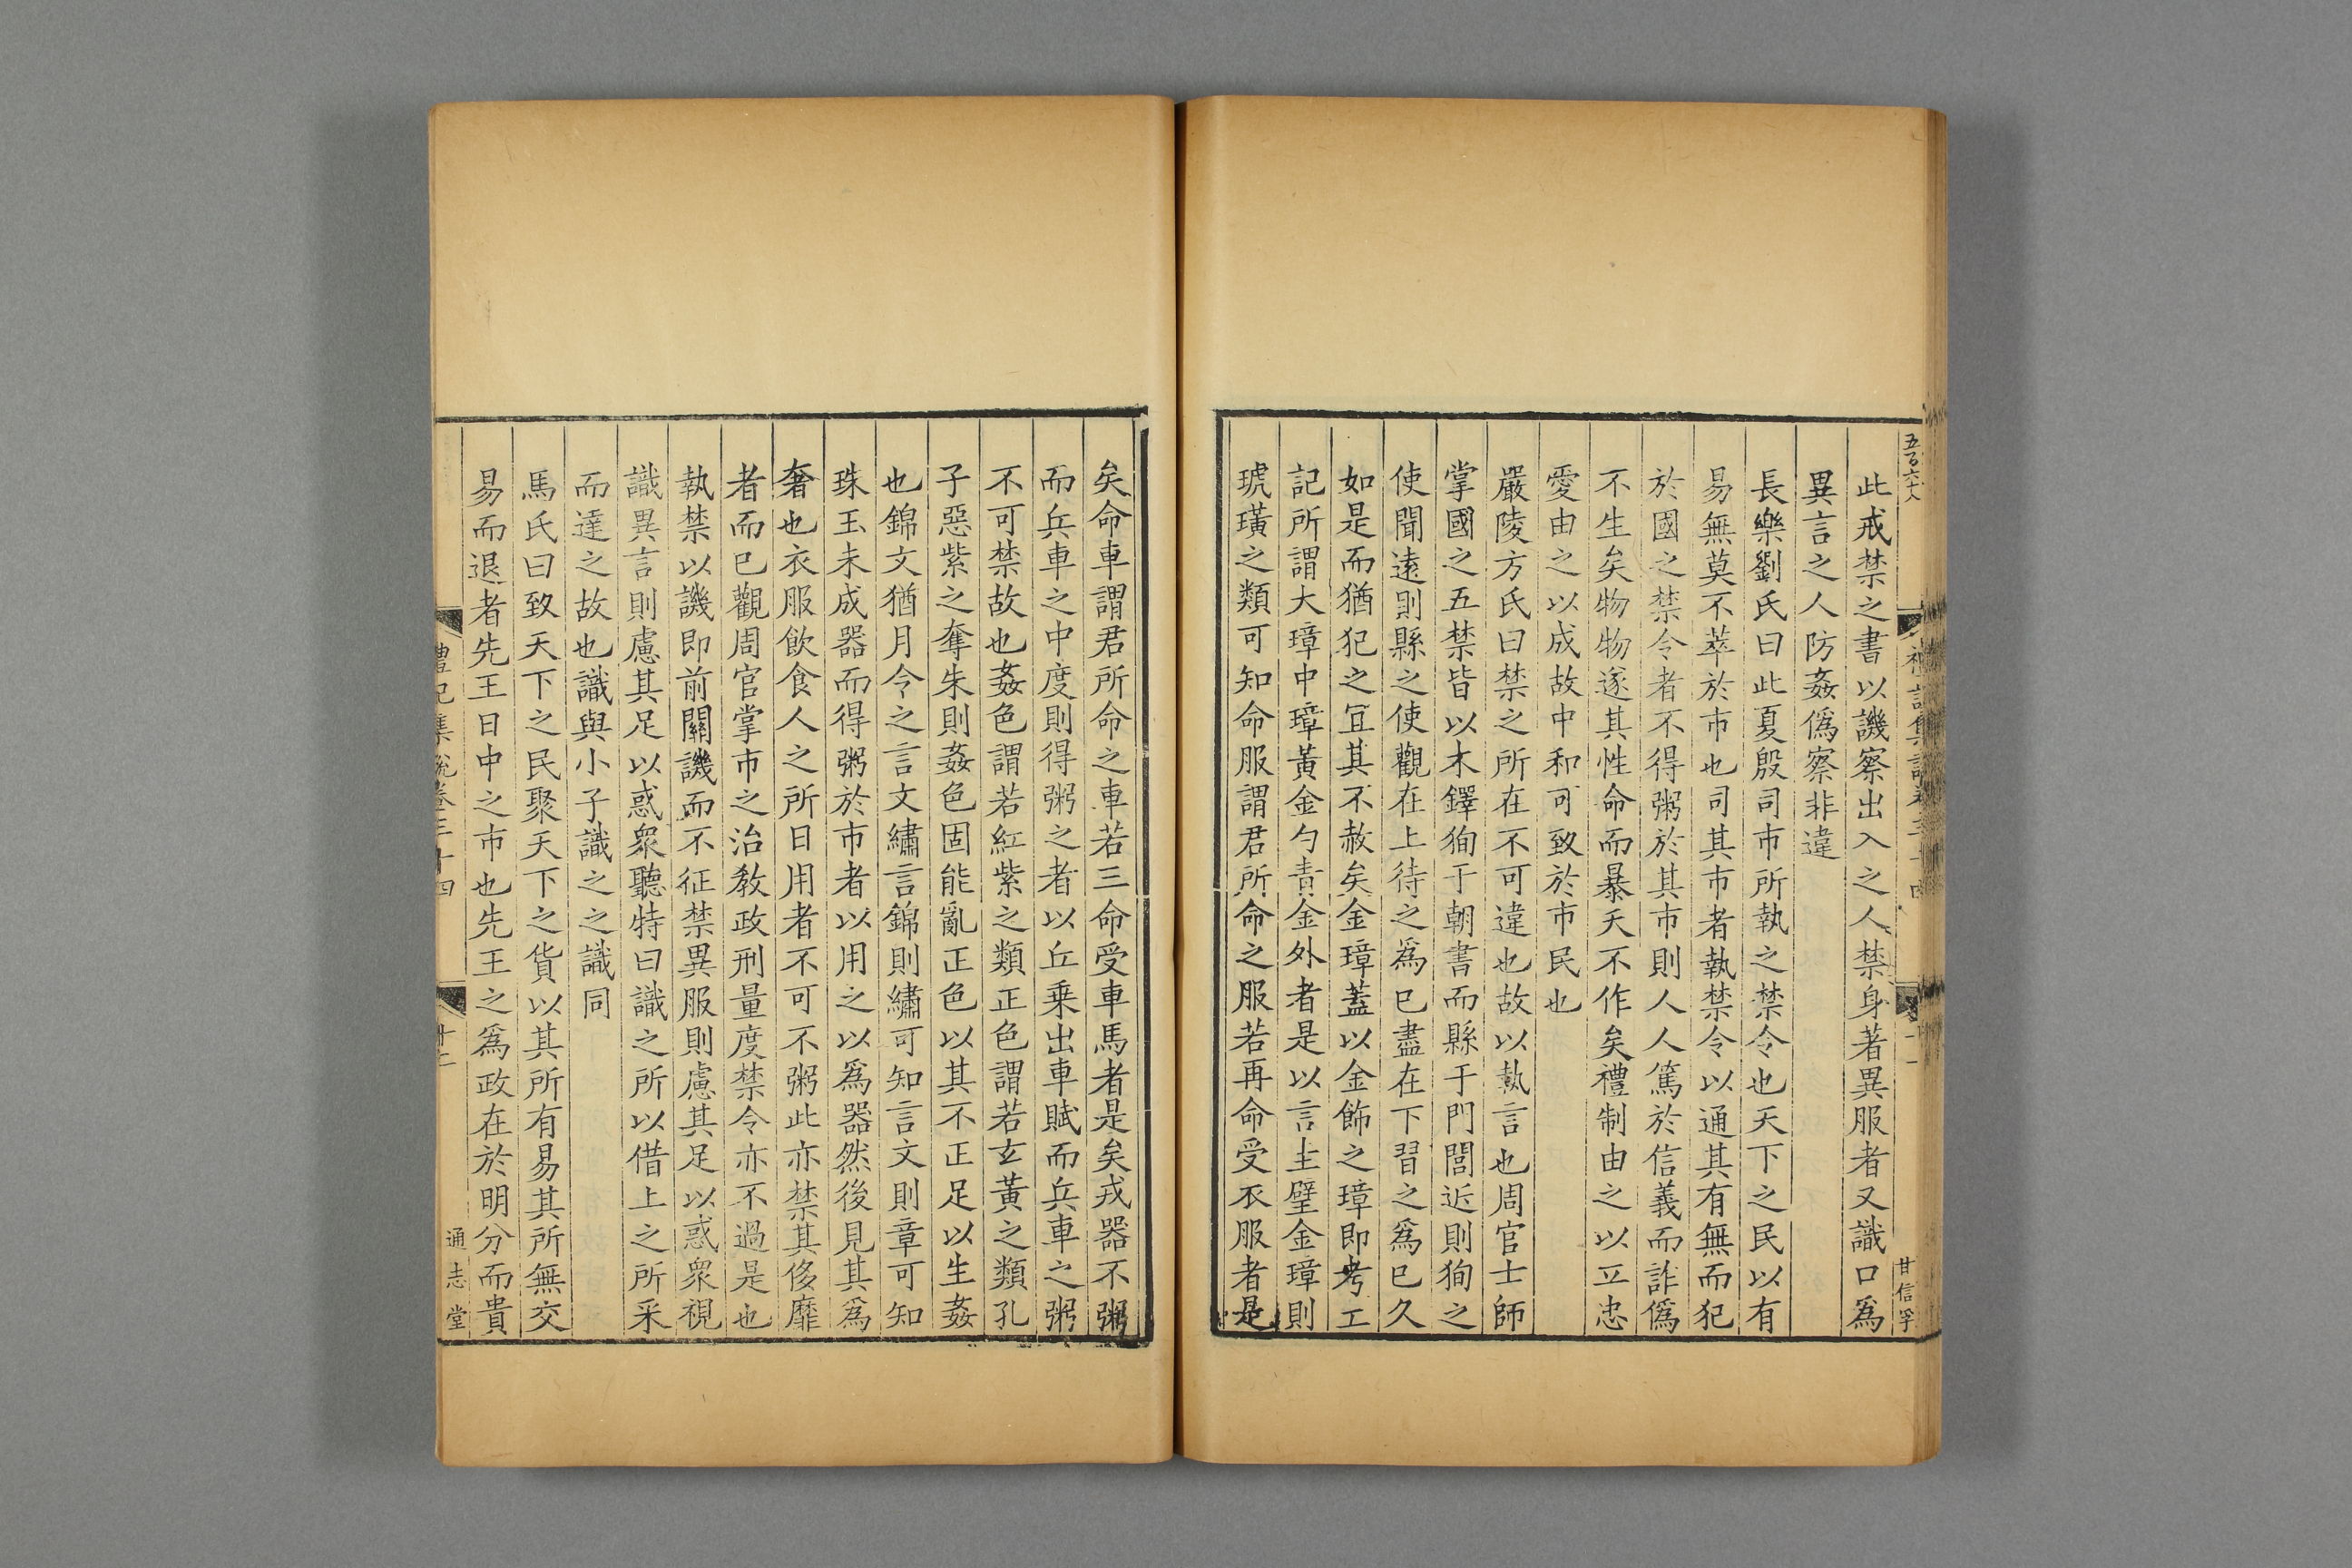 五百六十八
此戒禁之書以譏察出入之人禁身著異服者又識口爲
異言之人防姦僞察非違
長樂劉氏曰此夏殷司市所執之禁令也天下之民以有
易無莫不萃於市也司其市者執禁令以通其有無而犯
於國之禁令者不得粥於其市則人人篤於信義而詐僞
不生矣物物遂其性命而暴夭不作矣禮制由之以立忠
愛由之以成故中和可致於市民也
嚴陵方氏曰禁之所在不可違也故以執言也周官士師
掌國之五禁皆以木鐸狥于朝書而縣于門閭近則狥之
使聞遠則縣之使觀在上待之爲已盡在下習之爲已久
如是而猶犯之冝其不赦矣金璋蓋以金飾之璋即考工
記所謂大璋中璋黃金勺青金外者是以言圭璧金璋則
琥璜之類可知命服謂君所命之服若再命受衣服者是
甘信孚
矣命車謂君所命之車若三命受車馬者是矣戎器不粥
而兵車之中度則得粥之者以丘乗出車賦而兵車之粥
不可禁故也姦色謂若紅紫之類正色謂若玄黃之類孔
子惡紫之奪朱則姦色固能亂正色以其不正足以生姦
也錦文猶月令之言文繡言錦則繡可知言文則章可知
珠玉未成器而得粥於市者以用之以爲器然後見其爲
奢也衣服飲食人之所日用者不可不粥此亦禁其侈靡
者而已觀周官掌市之治敎政刑量度禁令亦不過是也
執禁以譏即前關譏而不征禁異服則慮其足以惑衆視
識異言則慮其足以惑衆聽特曰識之所以借上之所采
而達之故也識與小子識之之識同
馬氏曰致天下之民聚天下之貨以其所有易其所無交
易而退者先王日中之市也先王之爲政在於明分而貴
禮記集說卷三十四
通志堂